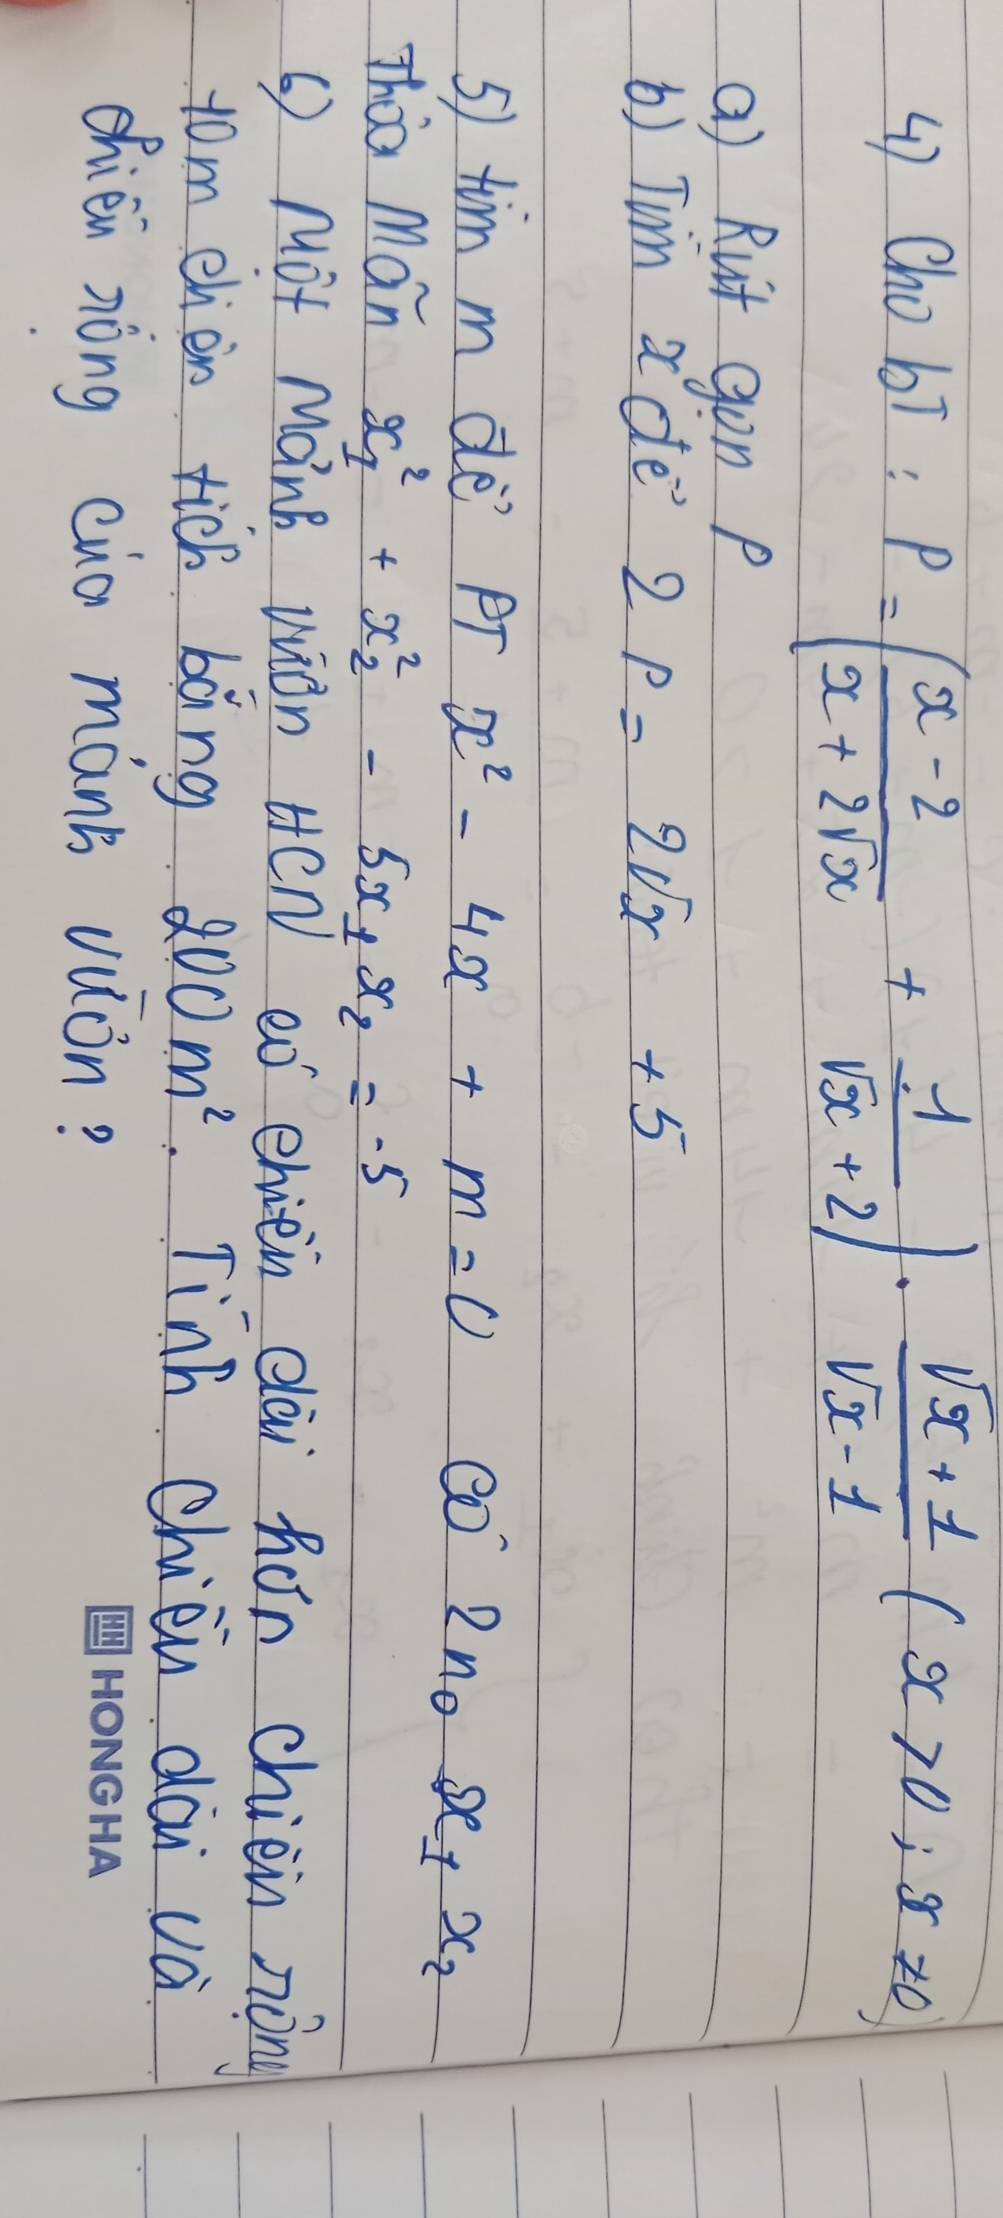 4) Cho bT : P = (x - 2 / x + 2√x + 1 / √x + 2) . √x + 1 / √x - 1 ( x > 0 ; x ≠ 0 )
a) Rút gọn P
b) Tìm x để 2 P = 2√x + 5
5) tìm m để PT x² - 4x + m = 0 có 2 n₀ x₁ x₂
Thỏa mãn x₁² + x₂² - 5x₁ x₂ = -5
6) Một mảnh vườn HCN có chiều dài hơn chiều rộng
10m diện tích bằng 200m². Tính chiều dài và
chiều rộng của mảnh vườn ?
HH HONG HA